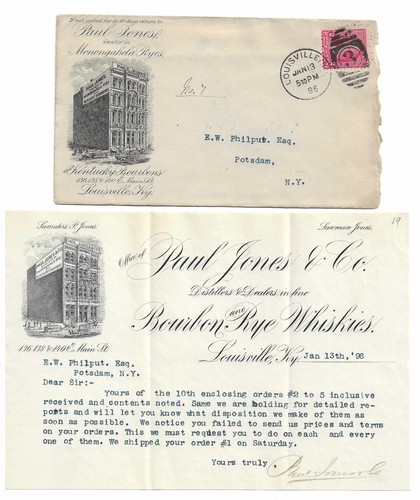 If not called for in 10 days return to
Paul Jones,
dealer in
Monongahela Ryes,
Kentucky Bourbons
136, 138 & 140 E. Main St.
Louisville, Ky.
No. 7
LOUISVILLE
JAN 13
5 30 PM
96
E.W. Philput. Esq.
Potsdam,
N.Y.
Saunders P. Jones.
Lawrence Jones.
19
Office of
Paul Jones & Co.
Distillers & Dealers in fine
Bourbon and Rye Whiskies.
136, 138 & 140 E. Main St.
Louisville, Ky. Jan 13th,'96
E.W. Philput. Esq.
Potsdam, N.Y.
Dear Sir:-
Yours of the 10th enclosing orders #2 to 5 inclusive
received and contents noted. Same we are holding for detailed re-
ports and will let you know what disposition we make of them as
soon as possible. We notice you failed to send us prices and terms
on your orders. This we must request you to do on each and every
one of them. We shipped your order #1 on Saturday.
Yours truly,
Paul Jones & Co.